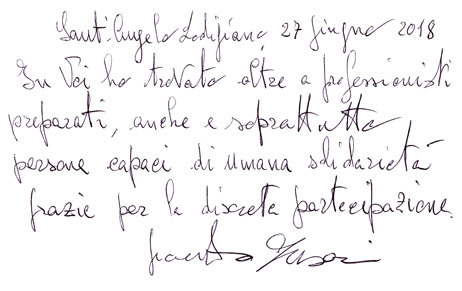 Sant'Angelo Lodigiano, 27 giugno 2018
In Voi ho trovato oltre a professionisti
preparati, anche e soprattutto
persone capaci di umana solidarietà
grazie per la discreta partecipazione.